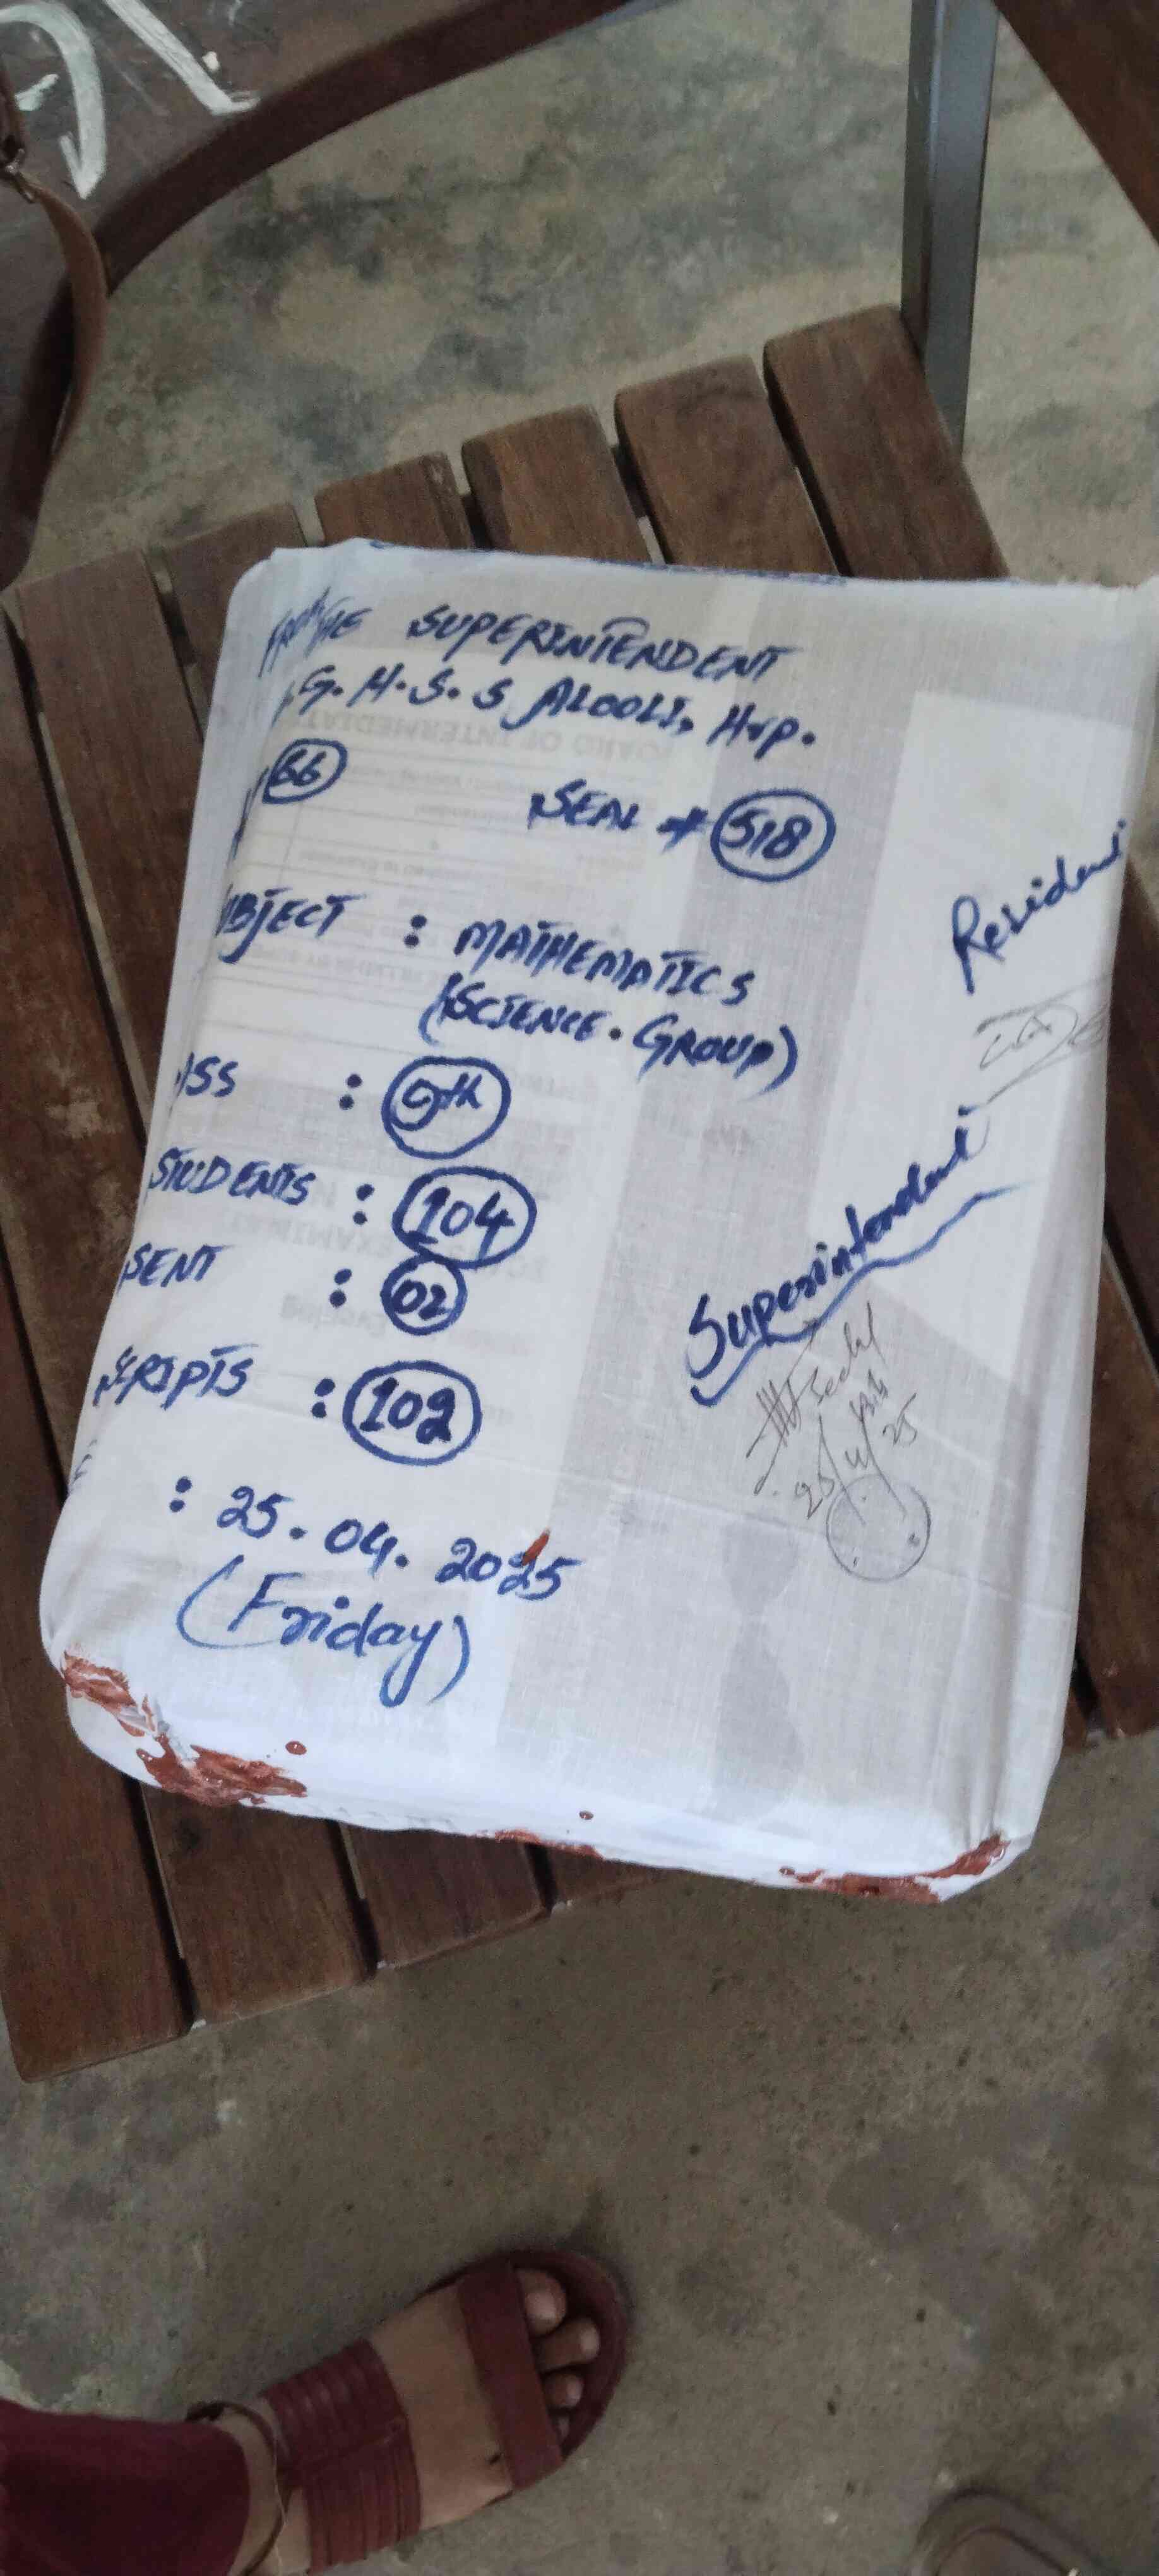 FROM THE SUPERINTENDENT
G.H.S.S ALOOLI, Hrp.
66 SEAL # 518
UBJECT : MATHEMATICS
(SCIENCE. GROUP)
ASS : 9th
STUDENTS : 104
SENT : 02
SCRIPTS : 102
: 25.04.2025
(Friday)
Resident
Superintendent
25/4/25